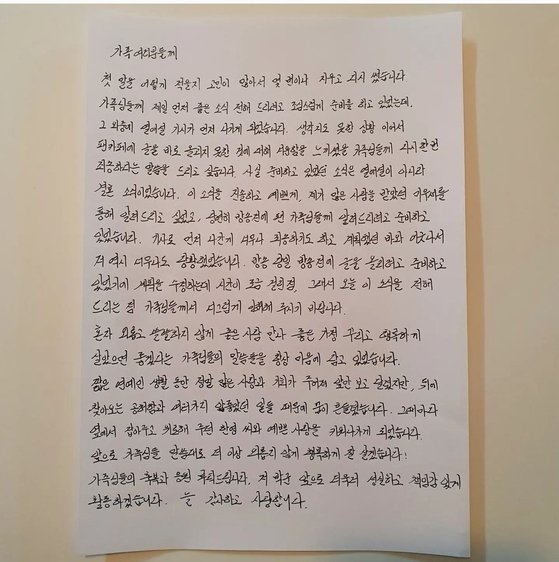 가족 여러분들께
첫 말을 어떻게 적을지 고민이 많아서 몇 번이나 지우고 다시 썼습니다
가족님들께 제일 먼저 좋은 소식 전해 드리려고 조심스럽게 준비를 하고 있었는데,
그 와중에 열애설 기사가 먼저 나가게 되었습니다. 생각지도 못한 상황 이어서
팬카페에 글을 바로 올리지 못한 것에 대해 서운함을 느끼셨을 가족님들께 다시 한 번
죄송하다는 말씀을 드리고 싶습니다. 사실 준비하고 있었던 소식은 열애설이 아니라
결혼 소식이었습니다. 이 소식을 진솔하고 예쁘게, 제가 많은 사랑을 받았던 미우새를
통해 알려드리고 싶었고, 당연히 방송전에 팬 가족님들께 알려드리려고 준비하고
있었습니다. 기사로 먼저 나간게 너무나 죄송하기도 하고 계획했던 바와 어긋나서
저 역시 너무나도 당황했었습니다. 방송 당일 방송전에 글을 올리려고 준비하고
있었기에 계획을 수정하는데 시간이 조금 걸렸고, 그래서 오늘 이 소식을 전해
드리는 점 가족님들께서 너그럽게 이해해 주시기 바랍니다.
혼자 외롭고 쓸쓸하지 않게 좋은 사람 만나 좋은 가정 꾸리고 행복하게
살았으면 좋겠다는 가족님들의 말씀들을 항상 마음에 담고 있었습니다.
짧은 연예인 생활 동안 정말 많은 사랑과 기회가 주어져 앞만 보고 달렸지만, 뒤에
찾아오는 공허함과 여러가지 아픔었던 일들 때문에 많이 흔들렸습니다. 그때마다
옆에서 잡아주고 의로해 주던 한영 씨와 예쁜 사랑을 키워나가게 되었습니다.
앞으로 가족님들 말씀대로 더 이상 외롭지 않게 행복하게 잘 살겠습니다!
가족님들의 축복과 응원 부탁드립니다. 저 박군 앞으로 더욱더 성실하고 책임감 있게
활동하겠습니다. 늘 감사하고 사랑합니다.